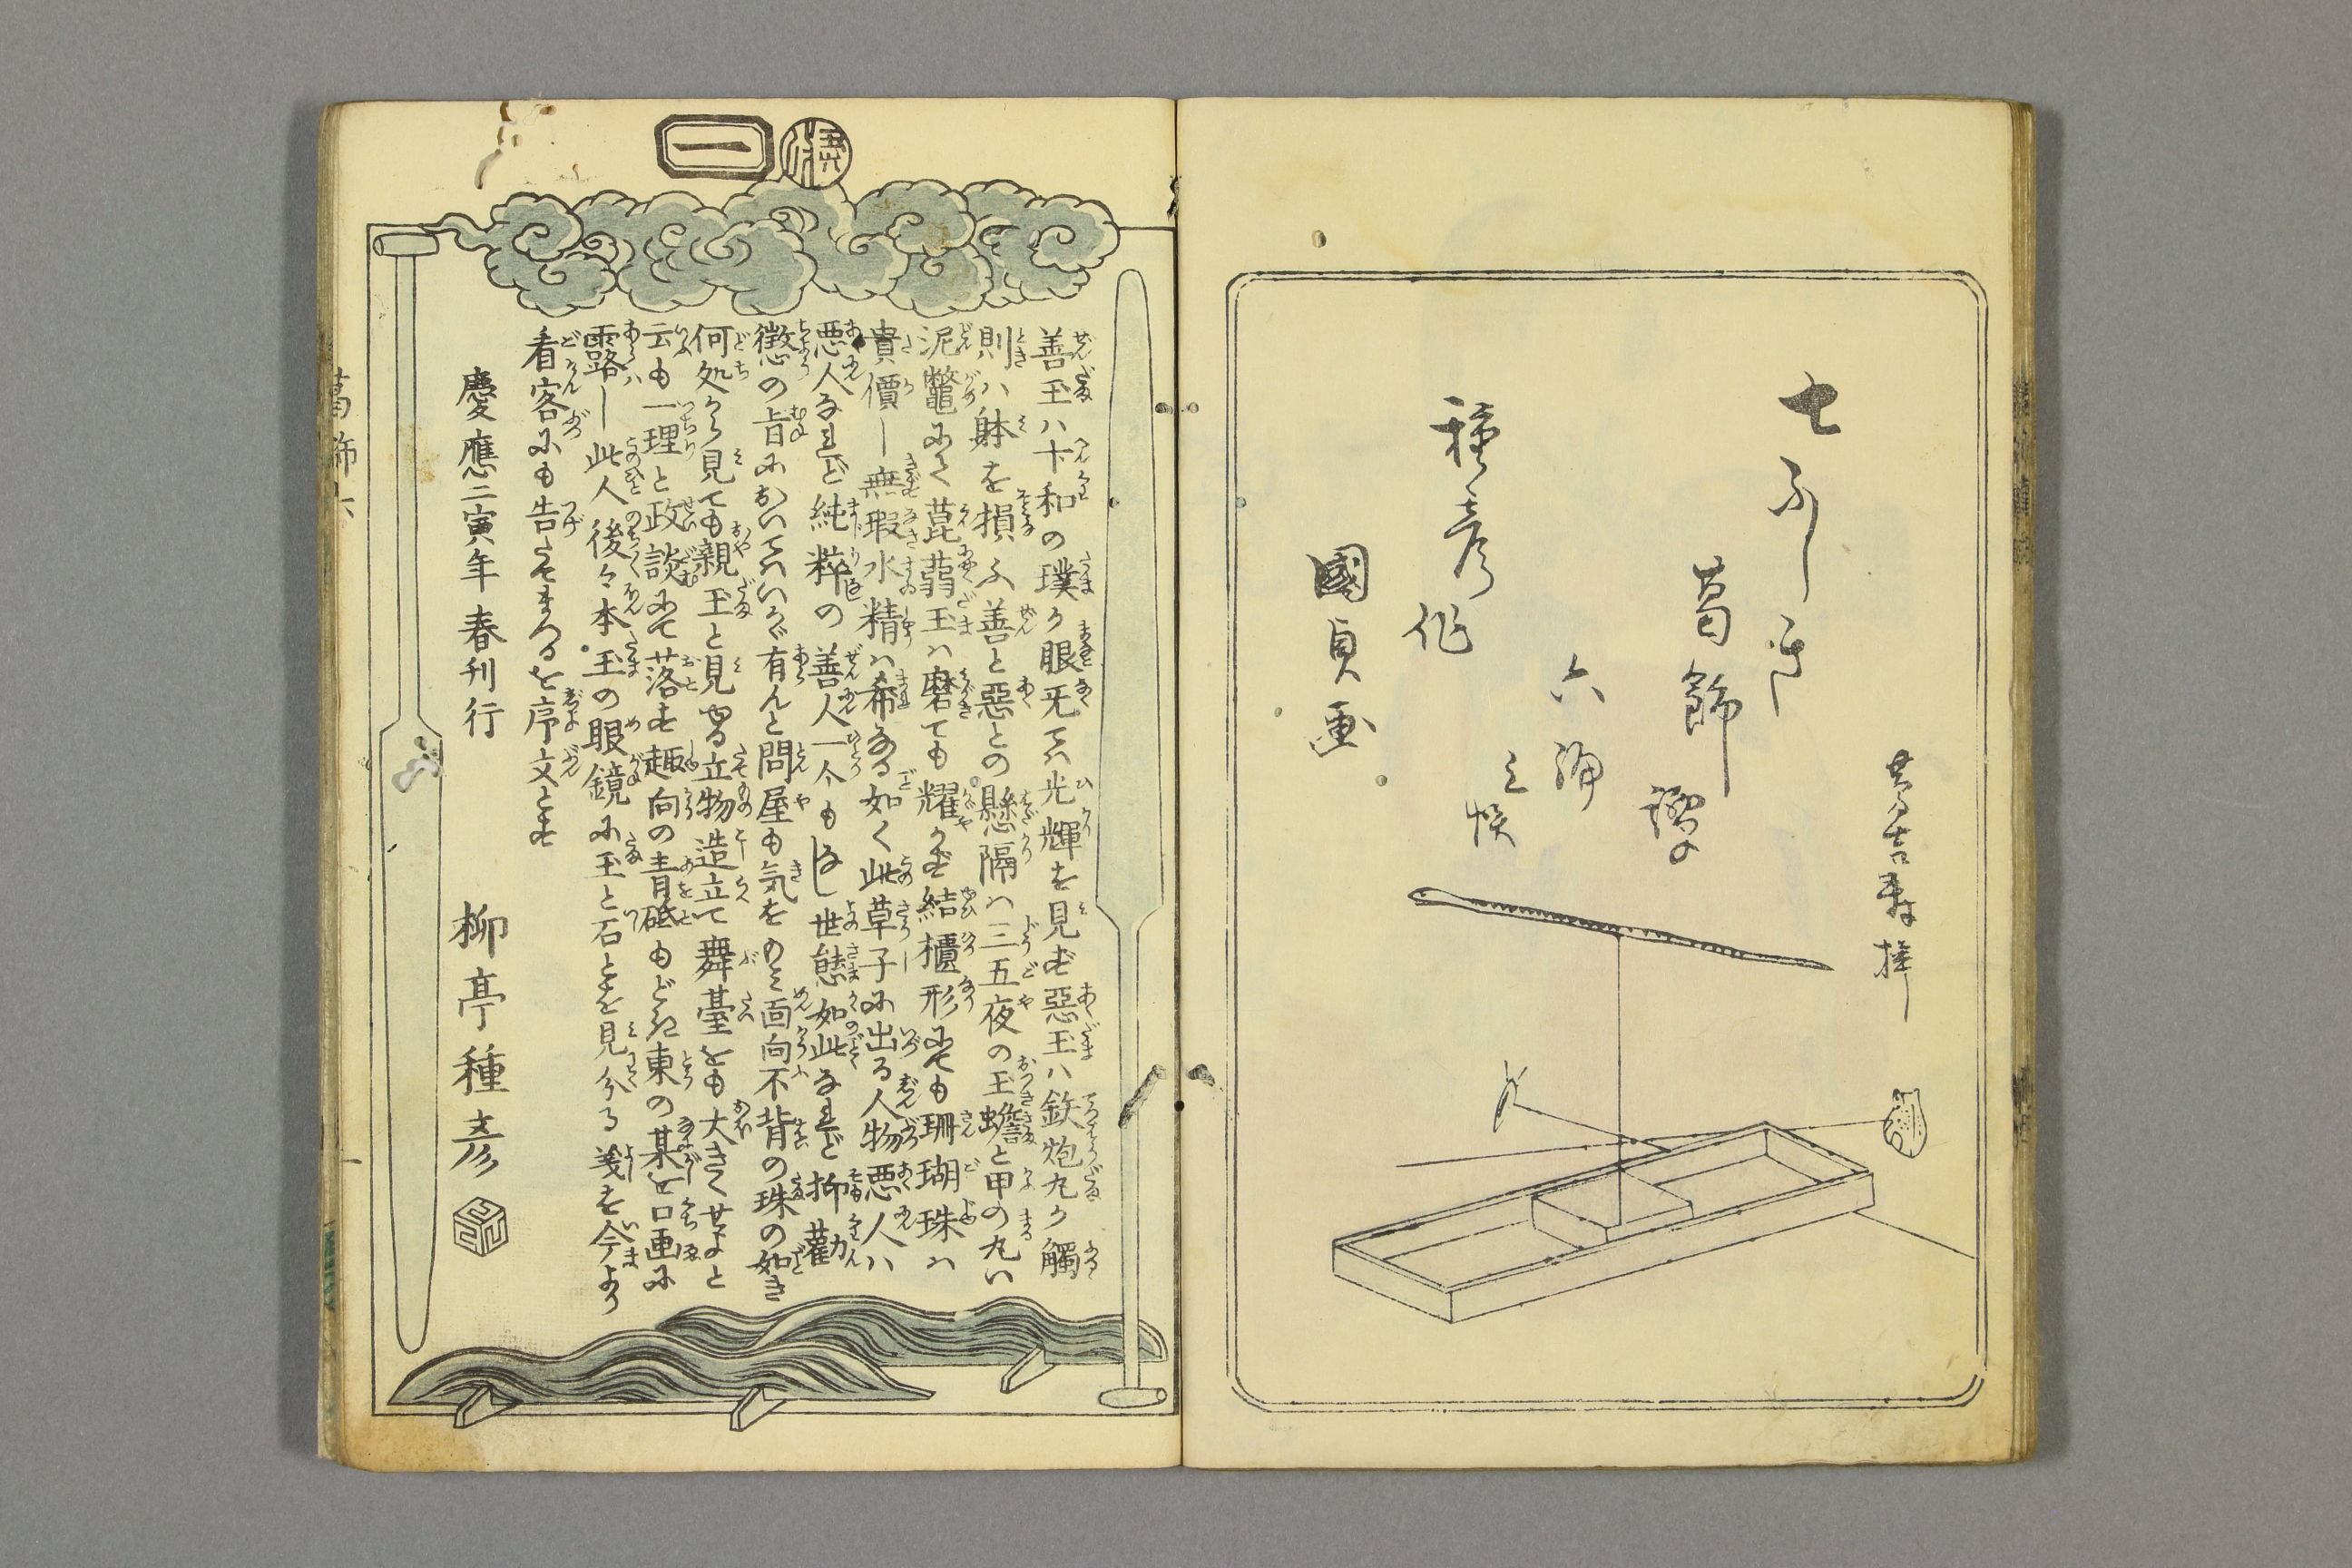 七ふしき
葛飾
譚
六編
上帙
種彦作
國貞画
一
善玉ハ卞和の璞か眼无てハ光輝を見ず惡玉ハ鉄炮丸か觸
則ハ躰を損ふ善と惡との懸隔ハ三五夜の玉蟾と甲の丸い
泥鼈にて菎蒻玉ハ磨ても耀かず結櫃形にても珊瑚珠ハ
貴價し無瑕水精ハ希なる如く此草子に出る人物悪人ハ
悪人なれど純粹の善人一個もなし世態如此なれど抑勸
懲の旨においてハいかゞ有んと問屋も気をのミ面向不背の珠の如き
何処から見ても親玉と見ゆる立物造立て舞臺をも大きくせよと
云も一理と政談にて落す趣向の青砥もどき東の某を口画に
露し此人後々本玉の眼鏡に玉と石とを見分る義を今より
看客にも告たてまつるを序文とす
慶應二寅年春刊行
柳亭種彦
葛飾六
一